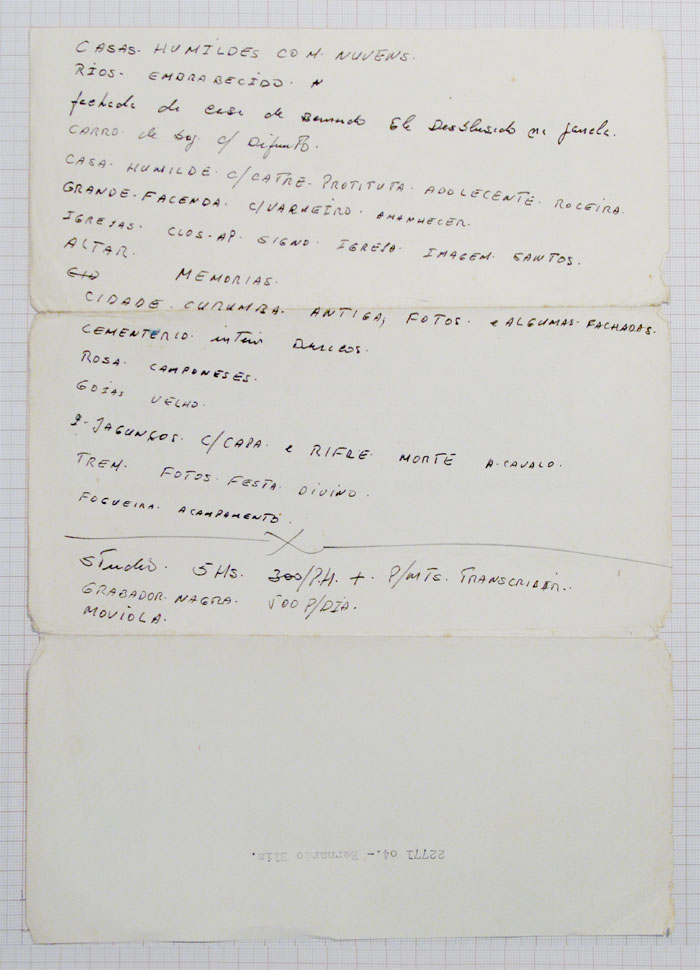 CASAS. HUMILDES COM. NUVENS.
RIOS. EMBRABECIDO. N
fachada da casa de Bernardo Elis Desdlusado na janela.
CARRO. de boy. c/ Difunto.
CASA. HUMILDE. C/CATRE. PROTITUTA. ADOLECENTE. ROCEIRA.
GRANDE. FACENDA. C/VAQUEIRO. AMANHECER.
IGREJAS. CLOS-AP. SIGNO. IGREJA. IMAGEM. SANTOS.
ALTAR.
MEMORIAS.
CIDADE. CURUMBA. ANTIGA, FOTOS. e ALGUMAS. FACHADAS.
CEMENTERIO.
ROSA. CAMPONESES.
GOIAS VELHO.
2-JAGUNÇOS. C/CAPA. e RIFLE. MORTE A.CAVALO.
TREM. FOTOS. FESTA. DIVINO.
FOGUEIRA. ACAMPAMENTO.
Studio. 5HS. 300/P.H. +. P/MTS. TRANSCRIBIR.
GRABADOR. NAGRA. 500 P/DIA.
MOVIOLA.
22771 04.- Bernardo Elis.